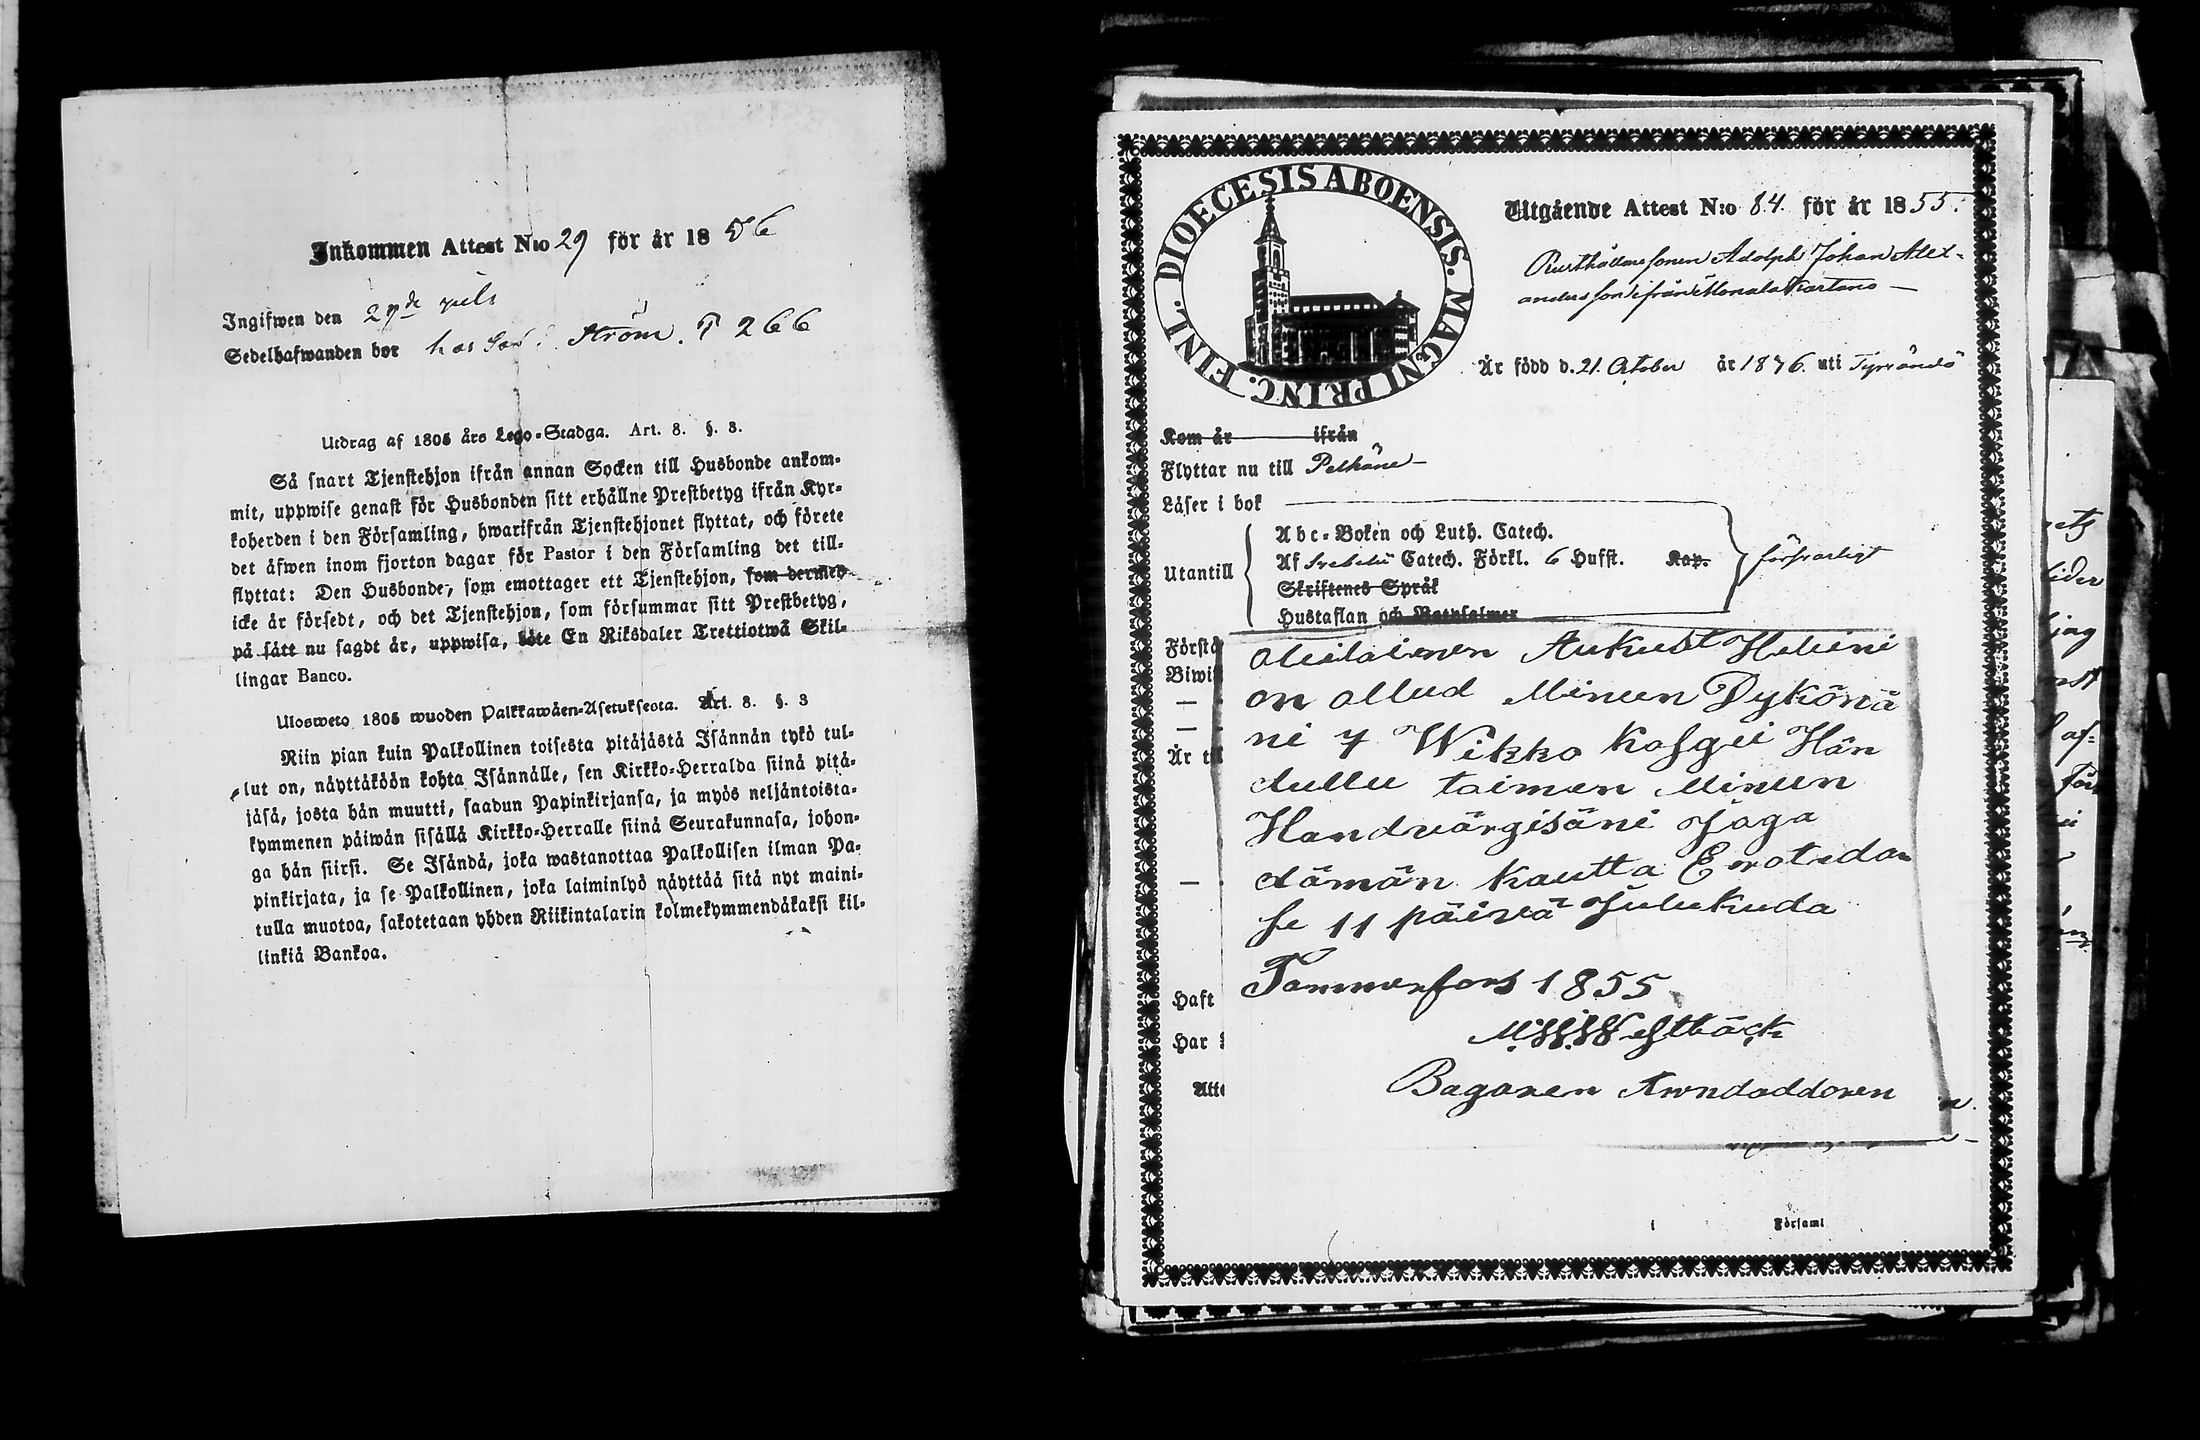 Inkommen Attest N:o 29 för år 1856
Ingifwen den 29de
Sedelhafwanden bor hos Ström. T 266
Utdrag af 1805 års Lego-Stadga. Art. 8. §. 3.
Så snart Tjenstehjon ifrån annan Socken till Husbonde ankom-
mit, uppwise genast för Husbonden sitt erhållne Prestbetyg ifrån Kyr-
koherden i den Församling, hwarifrån Tjenstehjonet flyttat, och förete
det äfwen inom fjorton dagar för Pastor i den Församling det till-
flyttat: Den Husbonde, som emottager ett Tjenstehjon, som dermed
icke är försedt, och det Tjenstehjon, som försummar sitt Prestbetyg,
på sätt nu sagdt är, uppwisa, böte En Riksdaler Trettiotwå Skil-
lingar Banco.
Ulosweto 1805 wuoden Palkkawäen-Asetuksesta. Art. 8. §. 3
Niin pian kuin Palkollinen toisesta pitäjästä Isännän tykö tul-
lut on, näyttäköön kohta Isännälle, sen Kirkko-Herralda siinä pitä-
jäsä, josta hän muutti, saadun Papinkirjansa, ja myös neljäntoista-
kymmenen päiwän sisällä Kirkko-Herralle siinä Seurakunnasa, johon-
ga hän siirsi. Se Isändä, joka wastanottaa Palkollisen ilman Pa-
pinkirjata, ja se Palkollinen, joka laiminlyö näyttää sitä nyt maini-
tulla muotoa, sakotetaan yhden Riikintalarin kolmekymmendäkaksi kil-
linkiä Bankoa.
FINL. DIOECESIS ABOENSIS. MAGNI PRINC.
Utgående Attest N:o 84. för år 1855.
Rusthållaresonen Adolph Johan Alex-
andersson ifrån Kartano
Är född d. 21. October år 1836. uti Tyrvändö
Kom år ifrån
Flyttar nu till Pelkäne
Läser i bok
Abc-Boken och Luth. Catech.
Utantill Af Svebelii Catech. Förkl. 6 Hufst. Kap. försvarligt
Skriftenes Språk
Hustaflan och Botpsalmer
Förstå
Biwi
Är t
Haft
Har
Atte
Aukust Heleni
on ollud Minun Tykönä
ni 7 Wikko kasgii Hän
dullu taimen Minun
Handvärgisäni Joga
dämän kautta Erotedan
se 11 päivä Julukuda
Tammerfors 1855
M.W.Westbäck
Bagaren Arvndaddoren
Församl